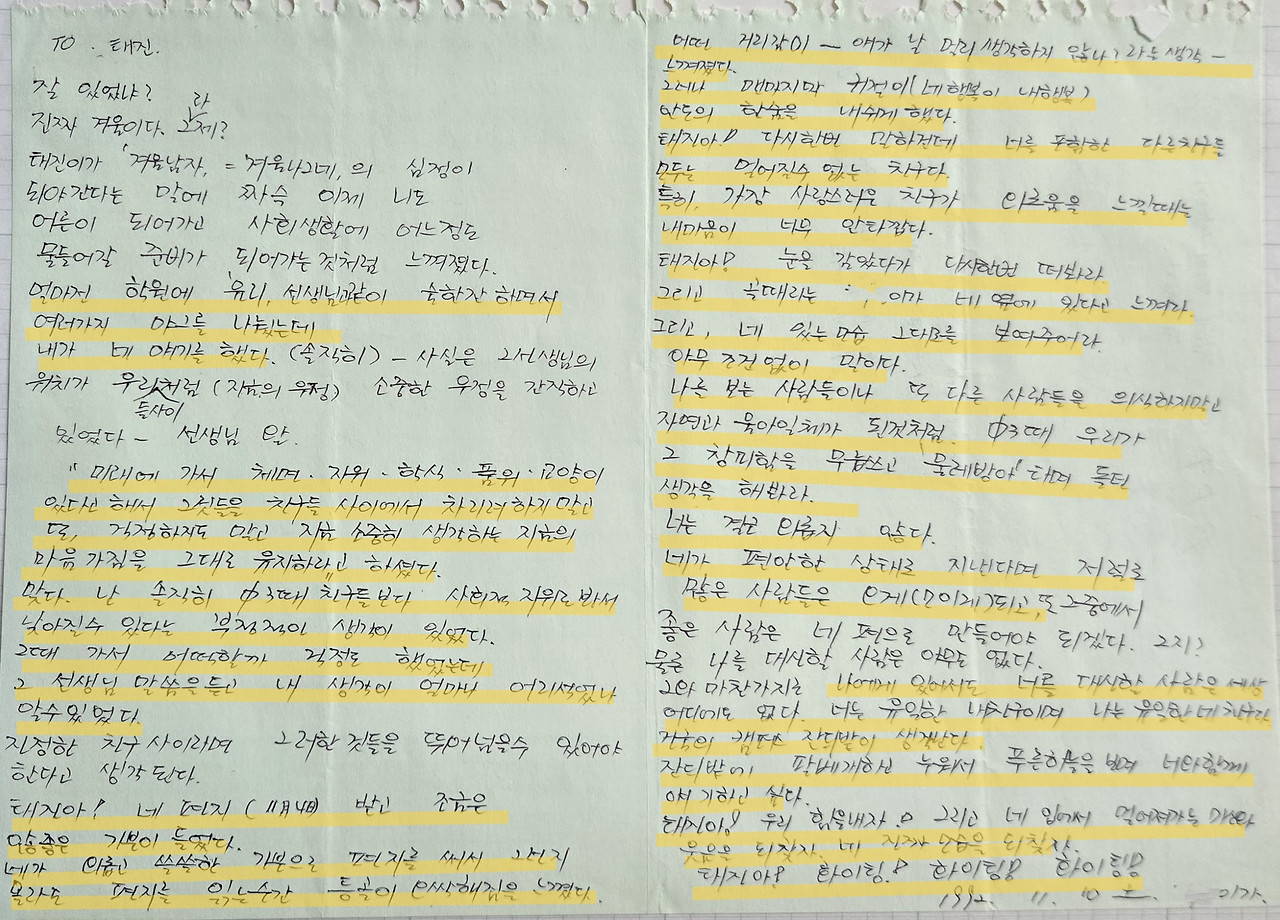 TO. 태진.
잘 있었냐?
진짜 겨울이다. 그제? 라
태진이가 '겨울남자, = 겨울나그네, 의 심정이
되야 간다는 말에 짜슥 이제 니도
어른이 되어가고 사회생활에 어느정도
물들어갈 준비가 되어가는것처럼 느껴졌다.
얼마전 학원에 '유리, 선생님과같이 술한잔 하면서
여러가지 야그를 나눴는데
내가 네 얘기를 했다. (솔직히) - 사실은 그선생님의
위치가 우리처럼 (지효의 우정) 소중한 우정을 간직하고
들사이
있었다 - 선생님 왈.
"미래에 가서 체면·지위·학식·품위·교양이
있다고 해서 그것들을 친구들 사이에서 차리려하지 말고
또, 걱정하지도 말고 지효 소중히 생각하는 지효의
마음가짐을 그대로 유지하라"고 하셨다.
맞다. 난 솔직히 中3때 친구들보다 사회적 지위로 봐서
낮아질수 있다는 부정적인 생각이 있었다.
그때 가서 어떠할까 걱정도 했었는데
그 선생님 말씀을듣고 내 생각이 얼마나 어리석었나
알수있었다.
진정한 친구사이라면 그러한것들을 뛰어넘을수 있어야
한다고 생각된다.
태진아! 네 편지 (11月4日) 받고 조금은
안좋은 기분이 들었다.
네가 외롭고 쓸쓸한 기분으로 편지를 써서 그런지
몰라도 편지를 읽는순간 등골이 으싹해짐을 느꼈다.
어떤 거리감이 - 얘가 날 멀리 생각하지 않나? 라는생각 -
느껴졌다.
그러나 매마지막 귀절이 (네행복이 내행복)
안도의 한숨을 내쉬게 했다.
태진아! 다시한번 말하건데 너를 포함한 다른친구들
모두는 멀어질수 없는 친구다.
특히, 가장 사랑스러운 친구가 외로움을 느낄때는
내마음이 너무 안타깝다.
태진아! 눈을 감았다가 다시한번 떠봐라.
그리고 꼭때리는 , 이가 네 옆에 있다고 느껴라.
그리고, 네 있는모습 그대로를 보여주어라.
아무 조건없이 막이다.
나를 보는 사람들이나 또 다른 사람들을 의식하지말고
자연과 물아일체가 된것처럼. 中3때 우리가
그 창피함을 무릅쓰고 '물레방아' 대며 돌던
생각을 해봐라.
너는 결코 외롭지 않다.
네가 편안한 상태로 지낸다면 저절로
많은 사람들은 오게(모이게)되고, 또 그중에서
좋은 사람은 네 편으로 만들어야 되겠다. 그지?
물론 나를 대신할 사람은 아무도 없다.
그와 마찬가지로 나에게 있어서도 너를 대신할 사람은 세상
어디에도 없다. 너는 유일한 내친구이며 나는 유일한 네 친구다
캠퍼스 잔디밭이 생각난다.
잔디밭에 팔베개하고 누워서 푸른하늘을 보며 너와함께
얘기하고 싶다.
태진아! 우리 힘을내자 그리고 네 입에서 멀어져가는
웃음을 되찾자. 네 진짜 모습을 되찾자.
태진아! 화이팅! 화이팅! 화이팅!
1992. 11. 10 이가.